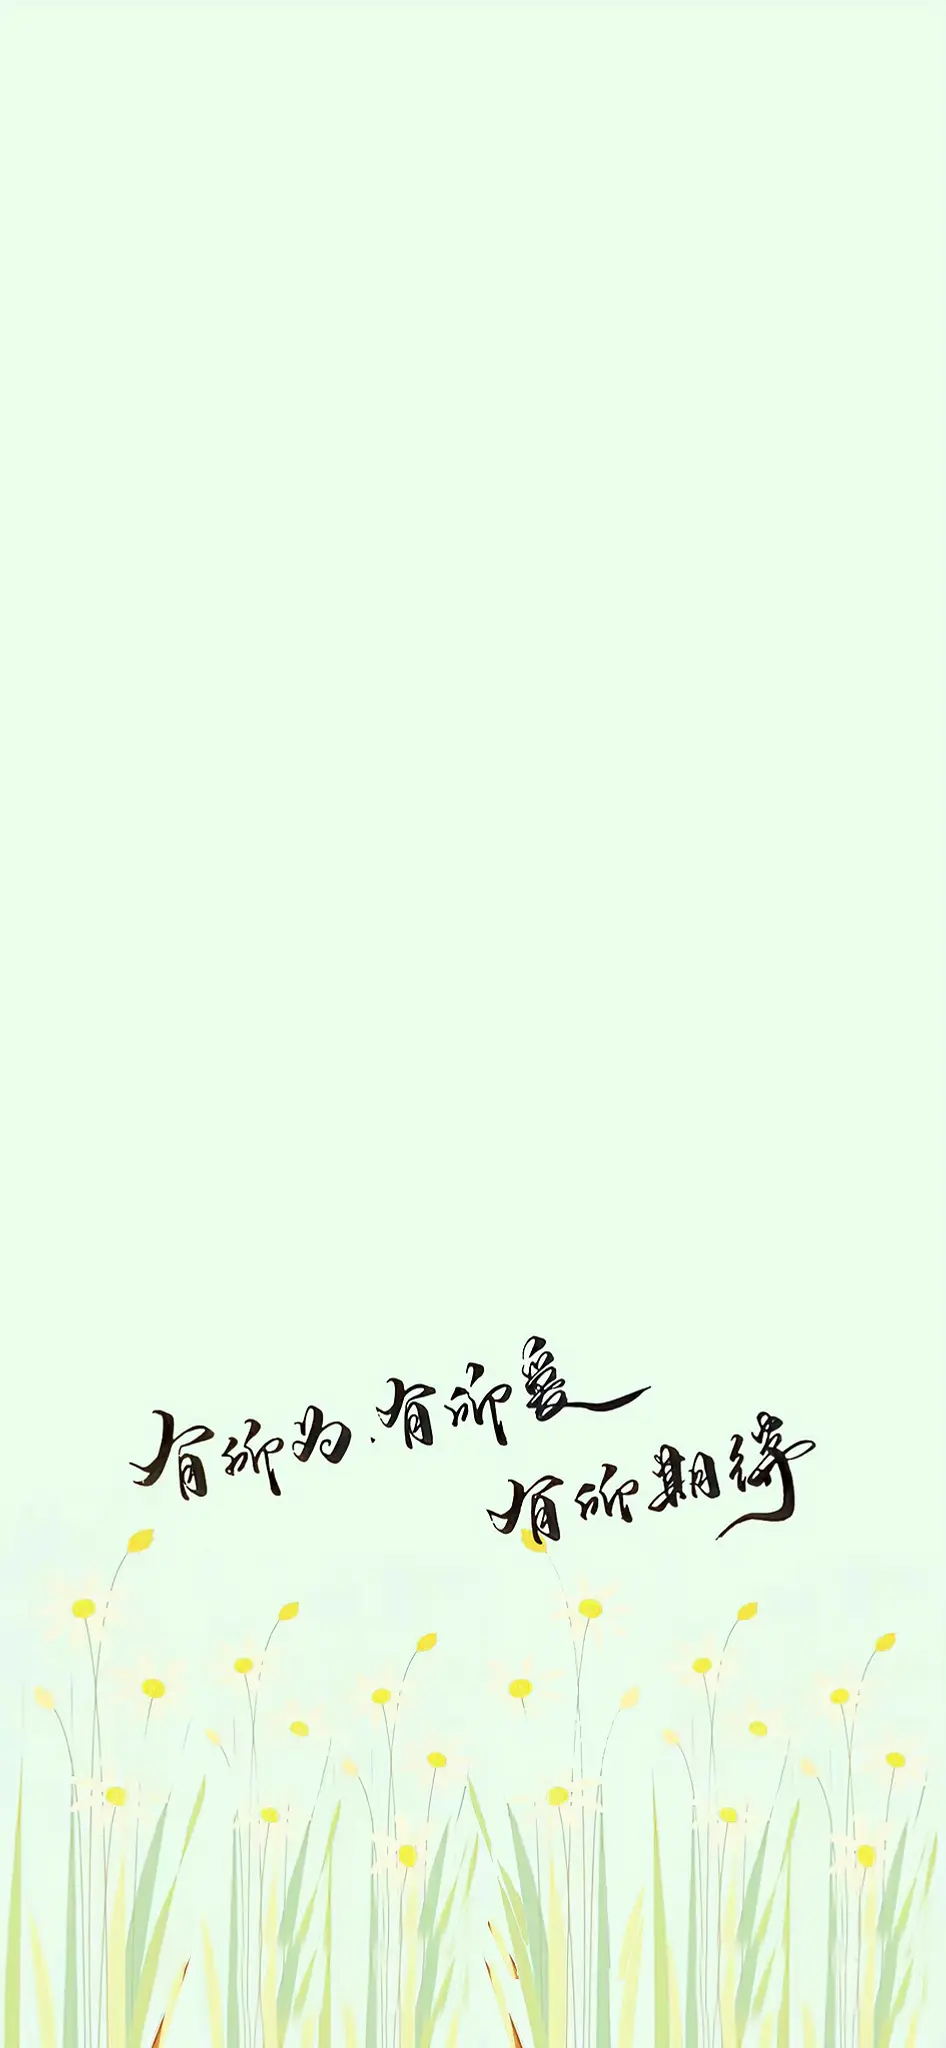 有所为.有所爱
有所期待